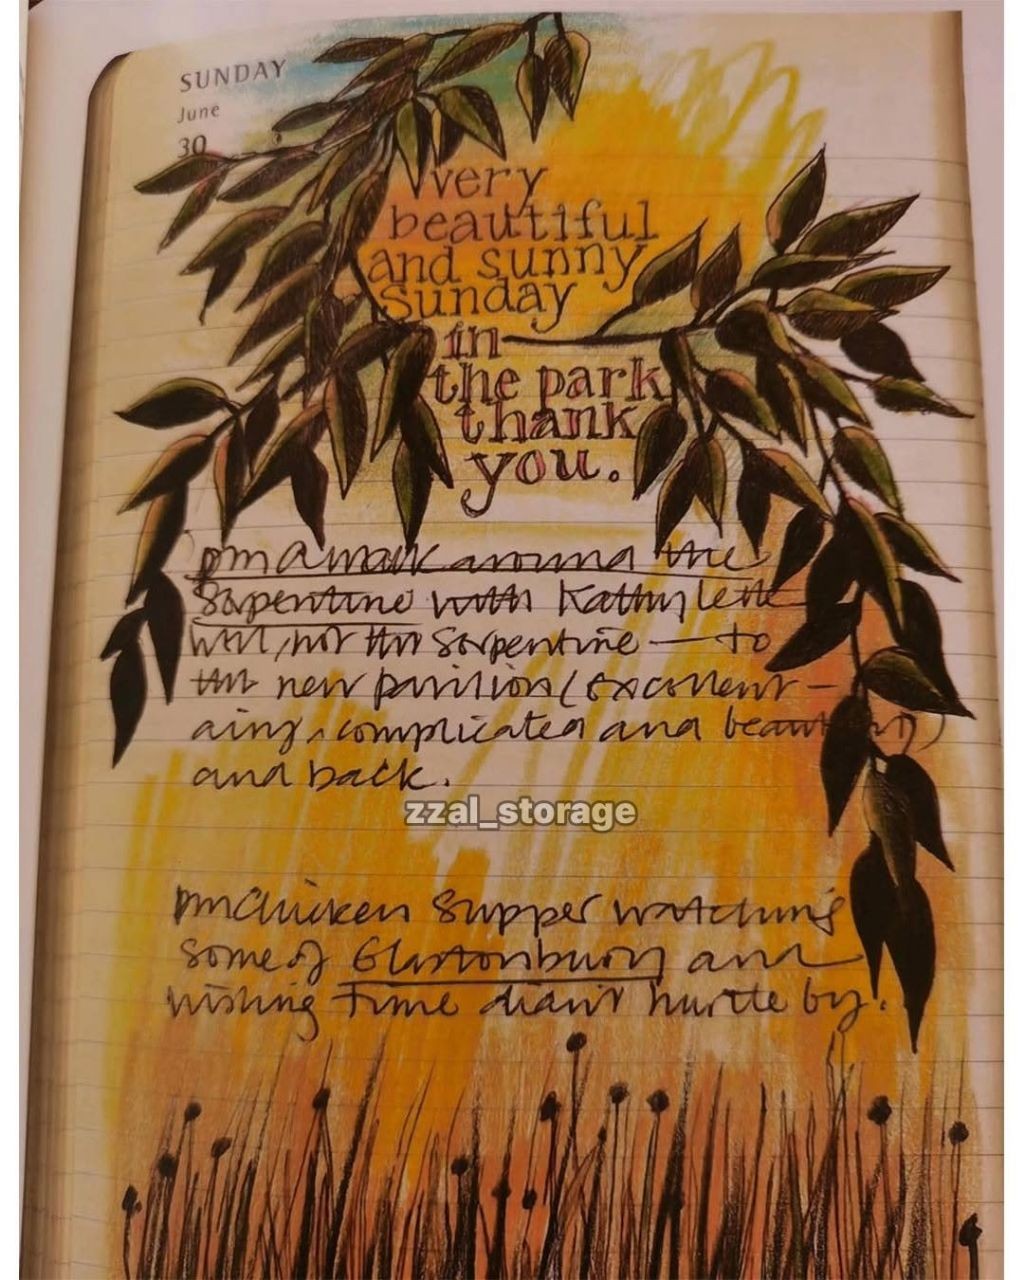 SUNDAY
June
30
very
beautiful
and sunny
Sunday
in
the park
thank
you.
pm A walk around the
Serpentine with Kathy Lette
well, not the Serpentine — to
the new pavilion (excellent –
airy, complicated and beautiful)
and back.
zzal_storage
pm Chicken Supper watching
some of Glastonbury and
wishing time didn't hurtle by.